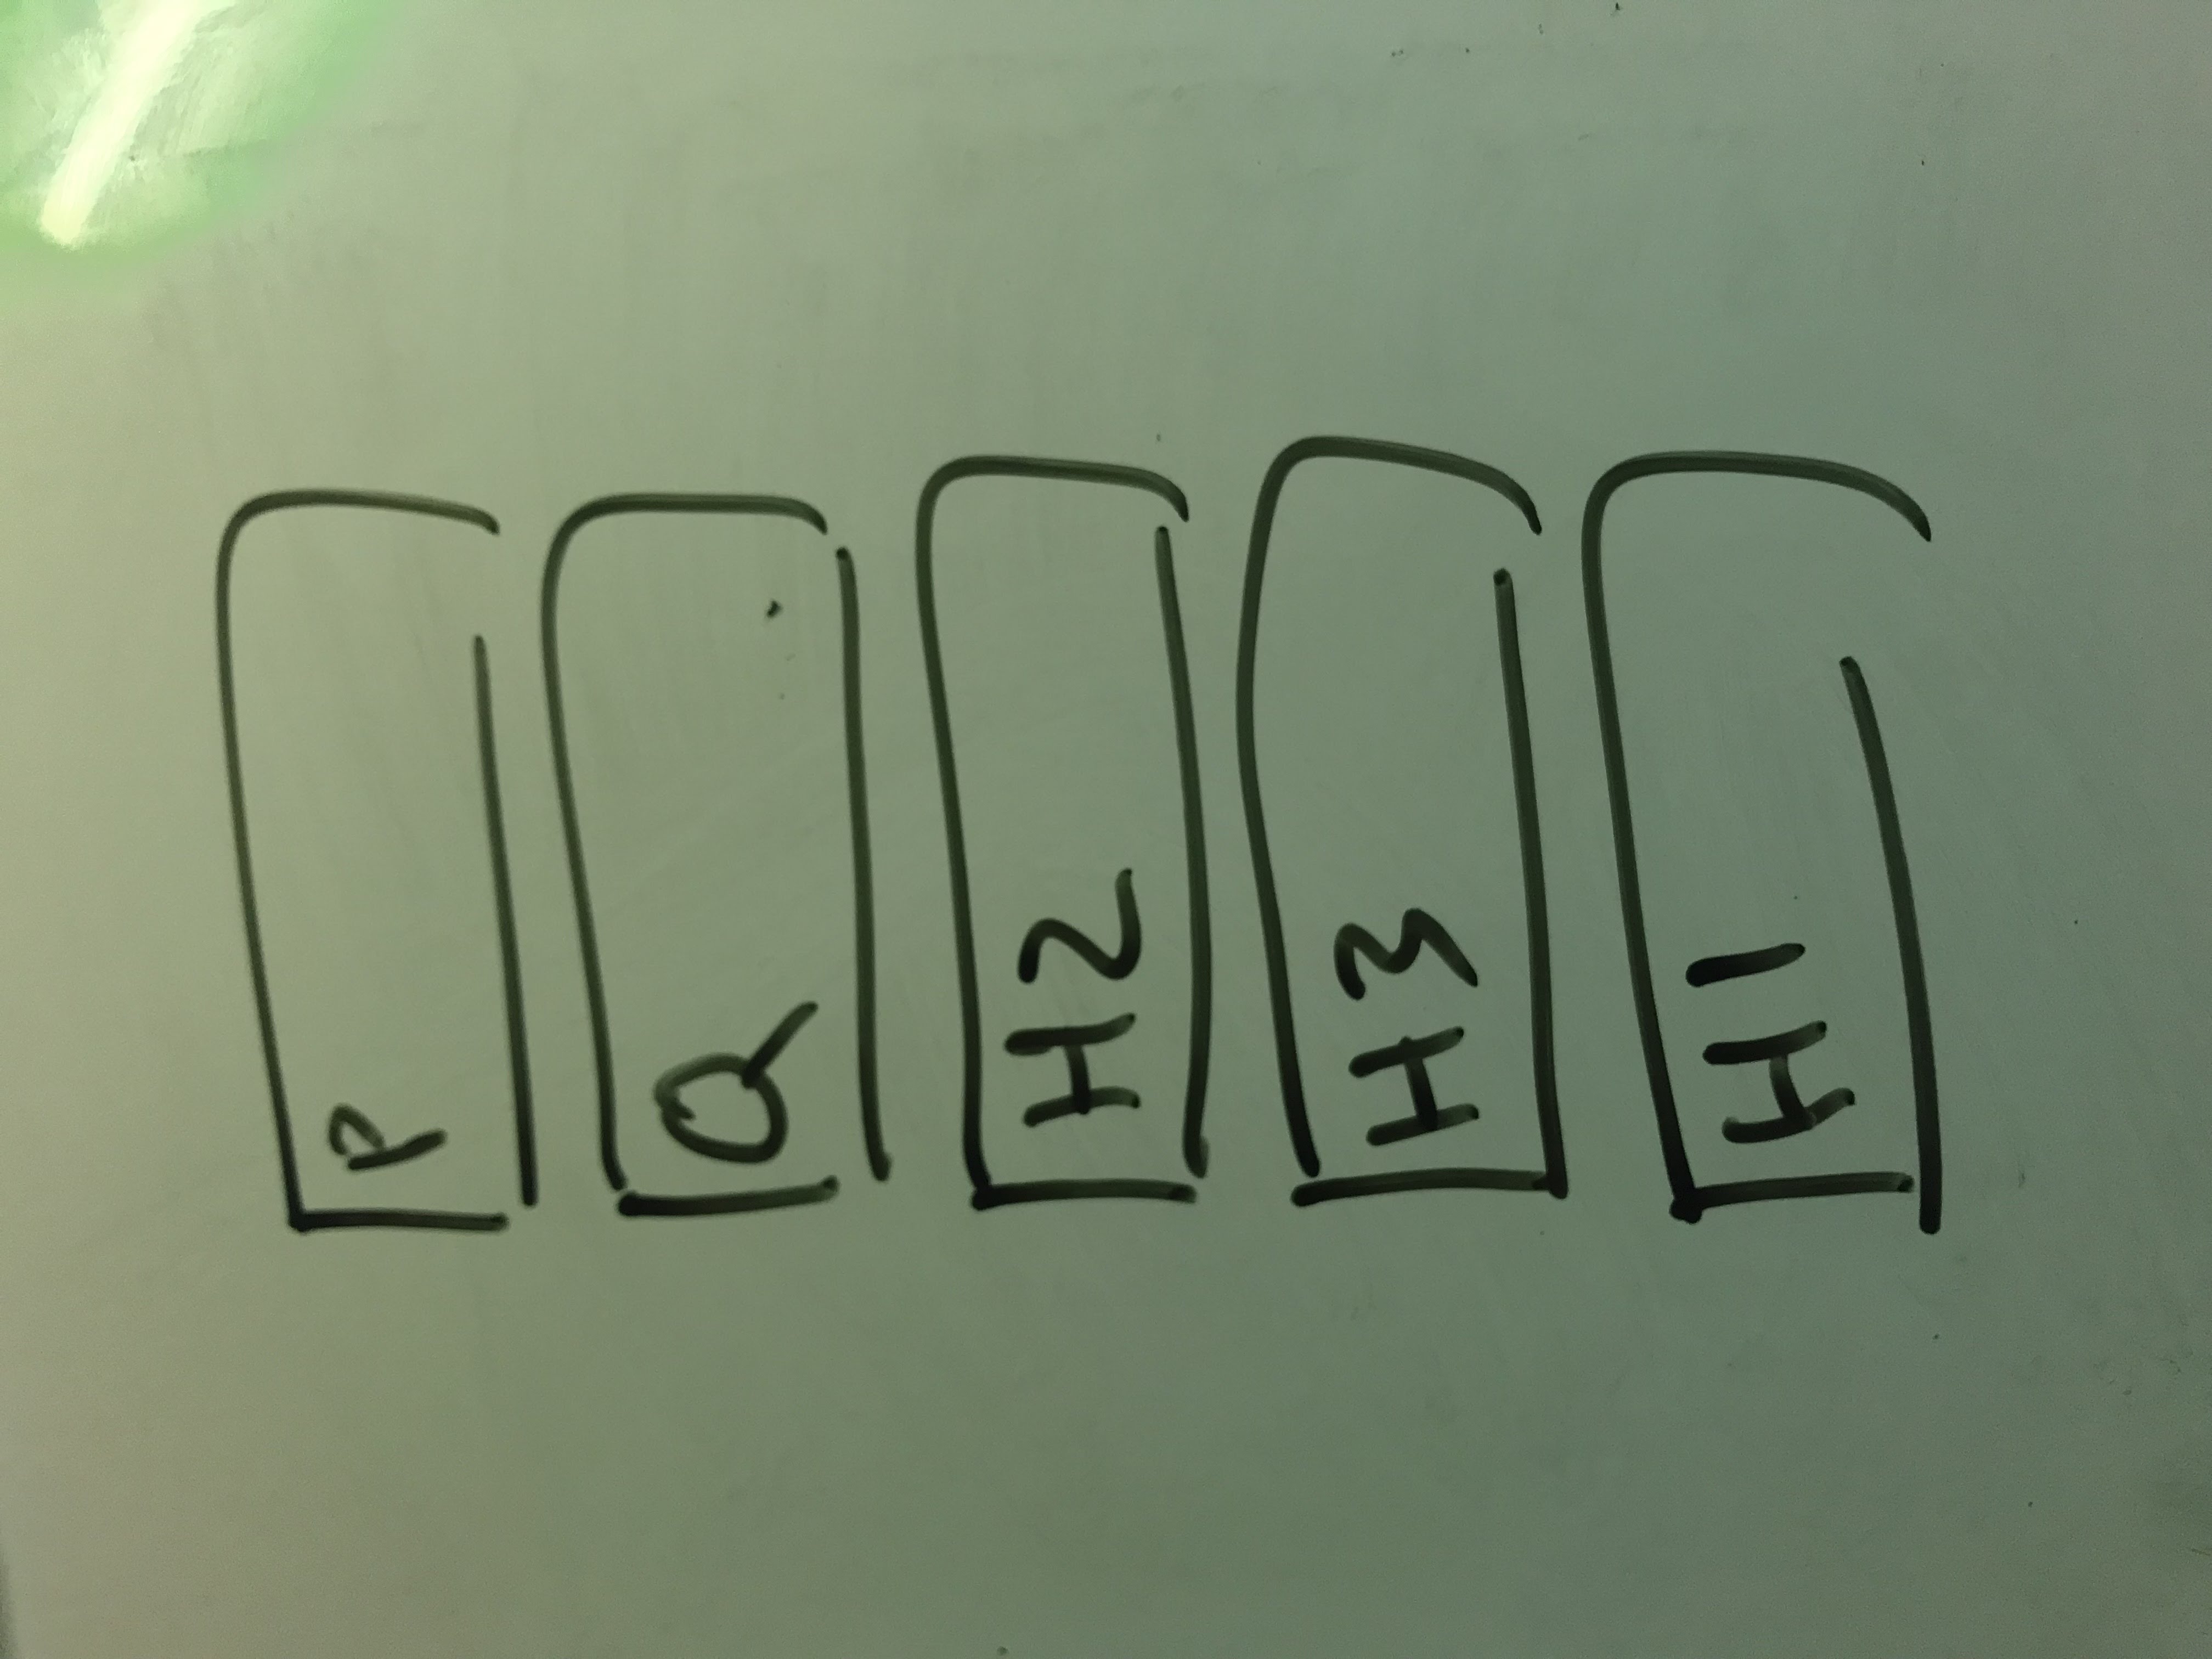 P
Q
H2
H3
H1